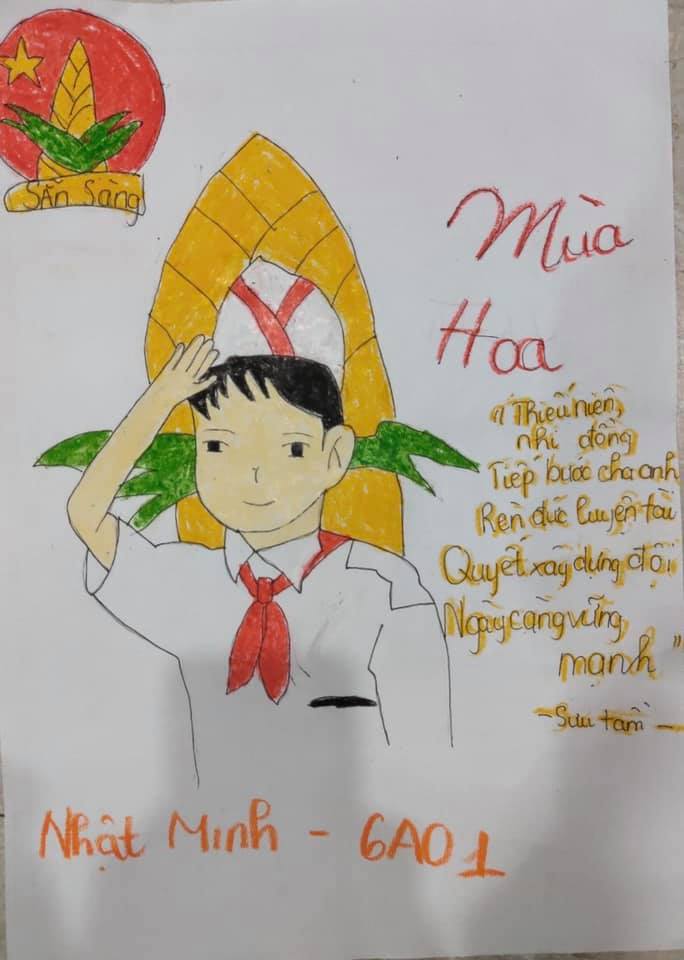 SẴN SÀng
Mùa
Hoa
"Thiếu niên,
nhi đồng
Tiếp bước cha anh
Rèn đức luyện tài
Quyết xây dựng đội
Ngày càng vững,
mạnh"
- Sưu tầm -
Nhật Minh - 6A01